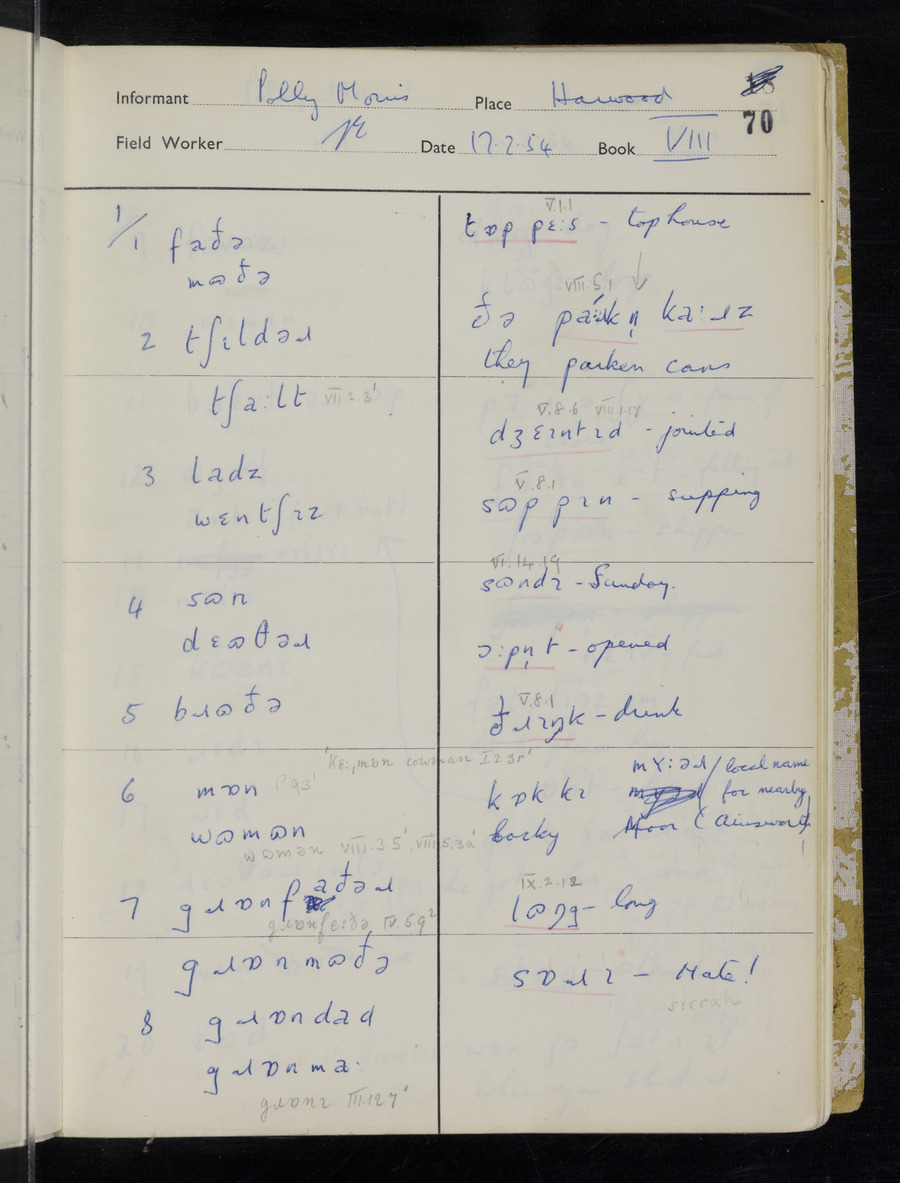 Informant Polly Morris Place Harwood
70
Field Worker Date 17.2.54 Book VIII
1/
1 faðə
mɷðə
2 tʃɩldəɹ
tʃa.lt VII.2.3'
3 ladz
wɛntʃɪz
4 sɷn
dɛɷθəɹ
5 bɹɷðə
'kɛ:,mɒn cowman I 2 3r'
6 mɒn
wɷmɒn
wɷmən VIII.3 5', VIII.5.3a'
7 gɹɒnfaðəɹ
gɹɒnfe:ðə IV.5.9²
gɹɒnmɷðə
8 gɹɒndad
gɹɒnma.
gɹɒnɪ III.12.7'
V.1.1
tɒp pɛ:s - top house
VIII.5.1
ðə pa:ɹkn̩ ka:ɹz
they parken cars
V.8.6 VIII.1.17
dʒɛɪntɪd - jointed
V.8.1
sɷppɪn - supping
VI.14.19
sɷndɪ - Sunday.
ɔ:pn̩t - opened
V.8.1
đɹɪŋk - drink
kɒkkɪ mʏ:əɹ / local name
for nearby
cocky Moor (Ainsworth)
!
IX.2.12
lɷŋg - long
sɒɹɪ - Mate!
- sirrah